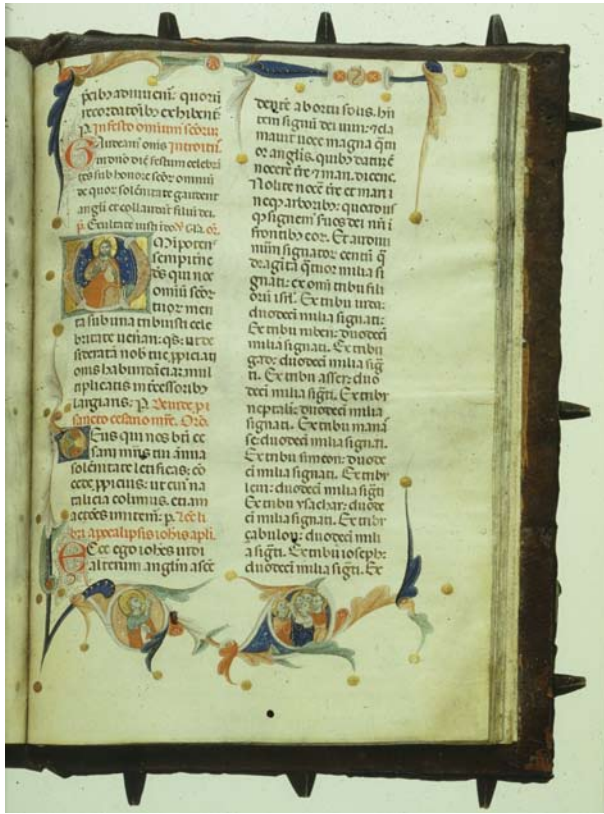 p̄cib₉ adiuuem̄: quoru̅
recordatōib₉ exhibent̄
p̄. In festo omnium sc̄oru̅.
Gaudeam̄ om̄s Introitu̅.
in dn̄o die̅ festum celebrā
tes sub honore sc̄or̄ omniū
de quor̄ sole̅nitate gaudent
angli et collaudāt filiū dei.
p̄. Exultate iusti
Om̄ipoten̄
sempitne
d̄s qui nos
omniū sc̄or̄
merı
ta sub una tribuisti cele
britate uen̄ari: qs̄: ut de
siderata̅ nob̄ tue p̄piciati
onis habunda̅tia̅: mul
tiplicatis int̄cessorib₉
largiaris: p̄.
sancto cesario mr̄e. Or̄o.
Deus qui nos bt̄i ce
sarij mr̄is tui annua
sole̅nitate letificas: co̅
cede p̄picius: ut cui₉ na
talicia colimus. etiam
actōes imitem̄: p̄. Lec̄ li
bri apocalipsis ioh̄is apl̄i.
Ecce ego ioh̄es uidi
alterum angl̄m asce̅
dente̅ ab ortu solis. ha̅
tem signu̅ dei uiui: ⁊ cla
mauit uoce magna q̄tu
or angl̄is. quib₉ datu̅ ē
nocere t̄re ⁊ mari. dice̅s.
Nolite noce̅ t̄re et mari
neq₃ arborib₉: quoadus
q₃ signem₉ s̄uos dei nr̄i i̅
frontib₉ eor̄. Et audiui
num̄um signator̄ centu̅ q̄
dragīta q̄tuor milia si
gnati: ex om̄i tribu fili
oru̅ isr̄l. Ex tribu iuda:
duodeci̅ milia signati:
Ex tribu ruben: duodeci̅
milia signati. Ex tribu
gad: duodeci̅ milia sig̅
ti. Ex tribu asser: duo
deci̅ milia signati. Ex tribu
neptali: duodeci̅ milia
signati. Ex tribu mana̅s
se: duodeci̅ milia signati.
Ex tribu simeon: duode
ci̅ milia signati. Ex tribu
leui: duodeci̅ milia sig̅ti
Ex tribu ysachar: duode
ci̅ milia signati. Ex tribu
çabulon: duodeci̅ mili
a sig̅ti. Ex tribu ioseph:
duodeci̅ milia sig̅ti. Ex